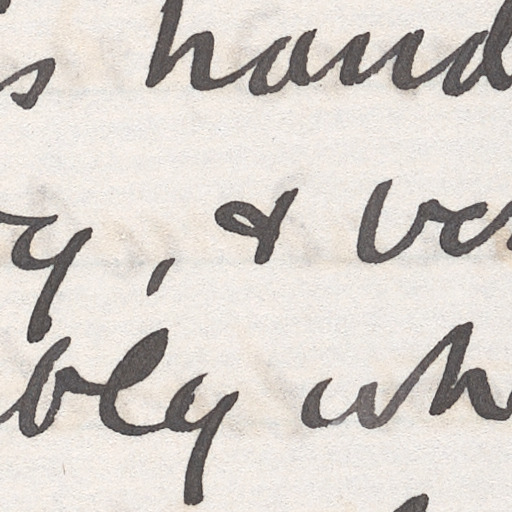 s hand
y, & ve
bly wh